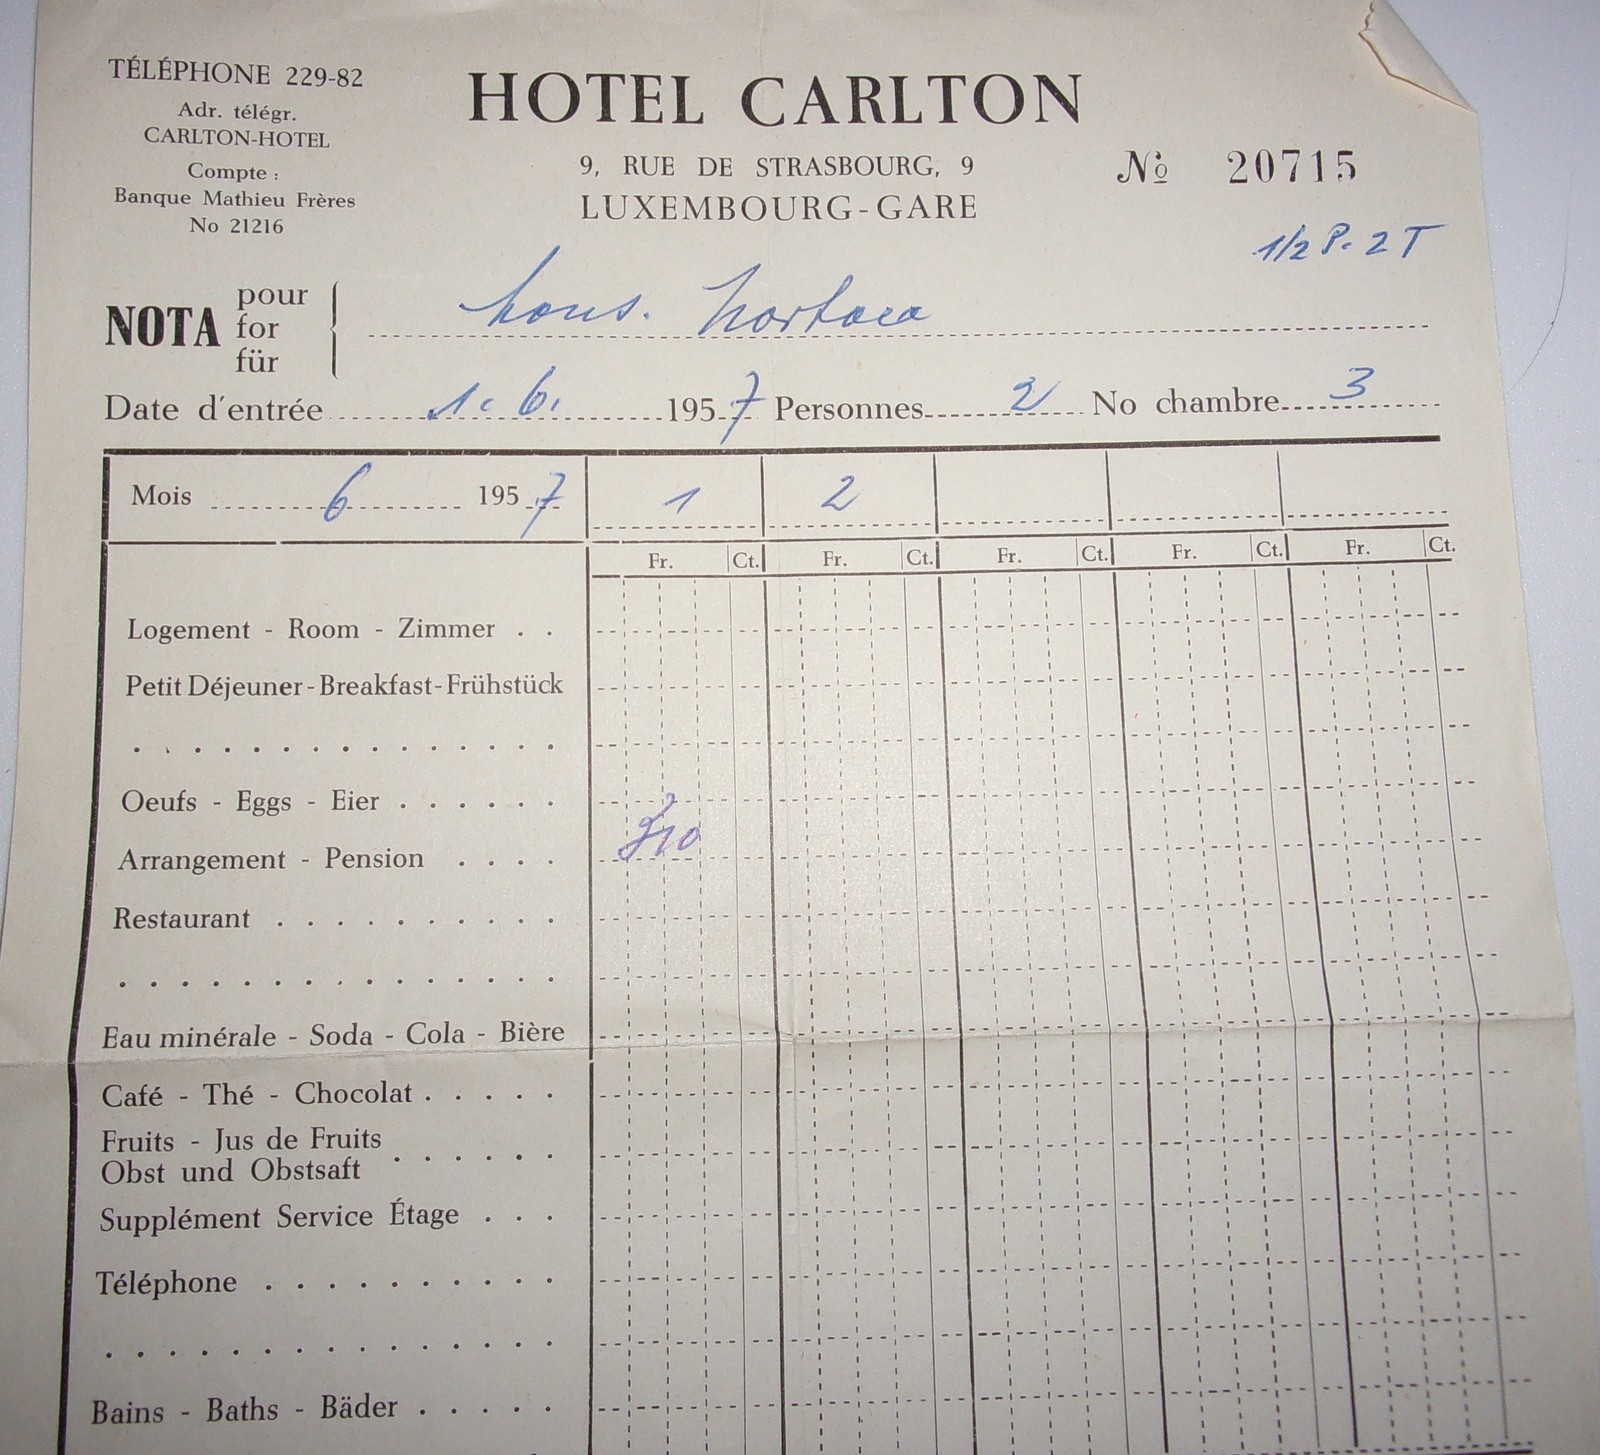 TÉLÉPHONE 229-82
Adr. télégr.
CARLTON-HOTEL
Compte :
Banque Mathieu Frères
No 21216
HOTEL CARLTON
9, RUE DE STRASBOURG, 9
LUXEMBOURG-GARE
No 20715
1/2 P. 2 T
NOTA pour for für
Mons. Mortara
Date d'entrée 1. 6. 1957 Personnes 2 No chambre 3
Mois 6 1957 1 2
Fr. Ct. Fr. Ct. Fr. Ct. Fr. Ct. Fr. Ct.
Logement - Room - Zimmer . .
Petit Déjeuner-Breakfast-Frühstück
Oeufs - Eggs - Eier . . . . . .
Arrangement - Pension . . . . 310
Restaurant . . . . . . . . . .
Eau minérale - Soda - Cola - Bière
Café - Thé - Chocolat . . . . .
Fruits - Jus de Fruits
Obst und Obstsaft . . . . . .
Supplément Service Étage . . .
Téléphone . . . . . . . . . .
Bains - Baths - Bäder . . . . .